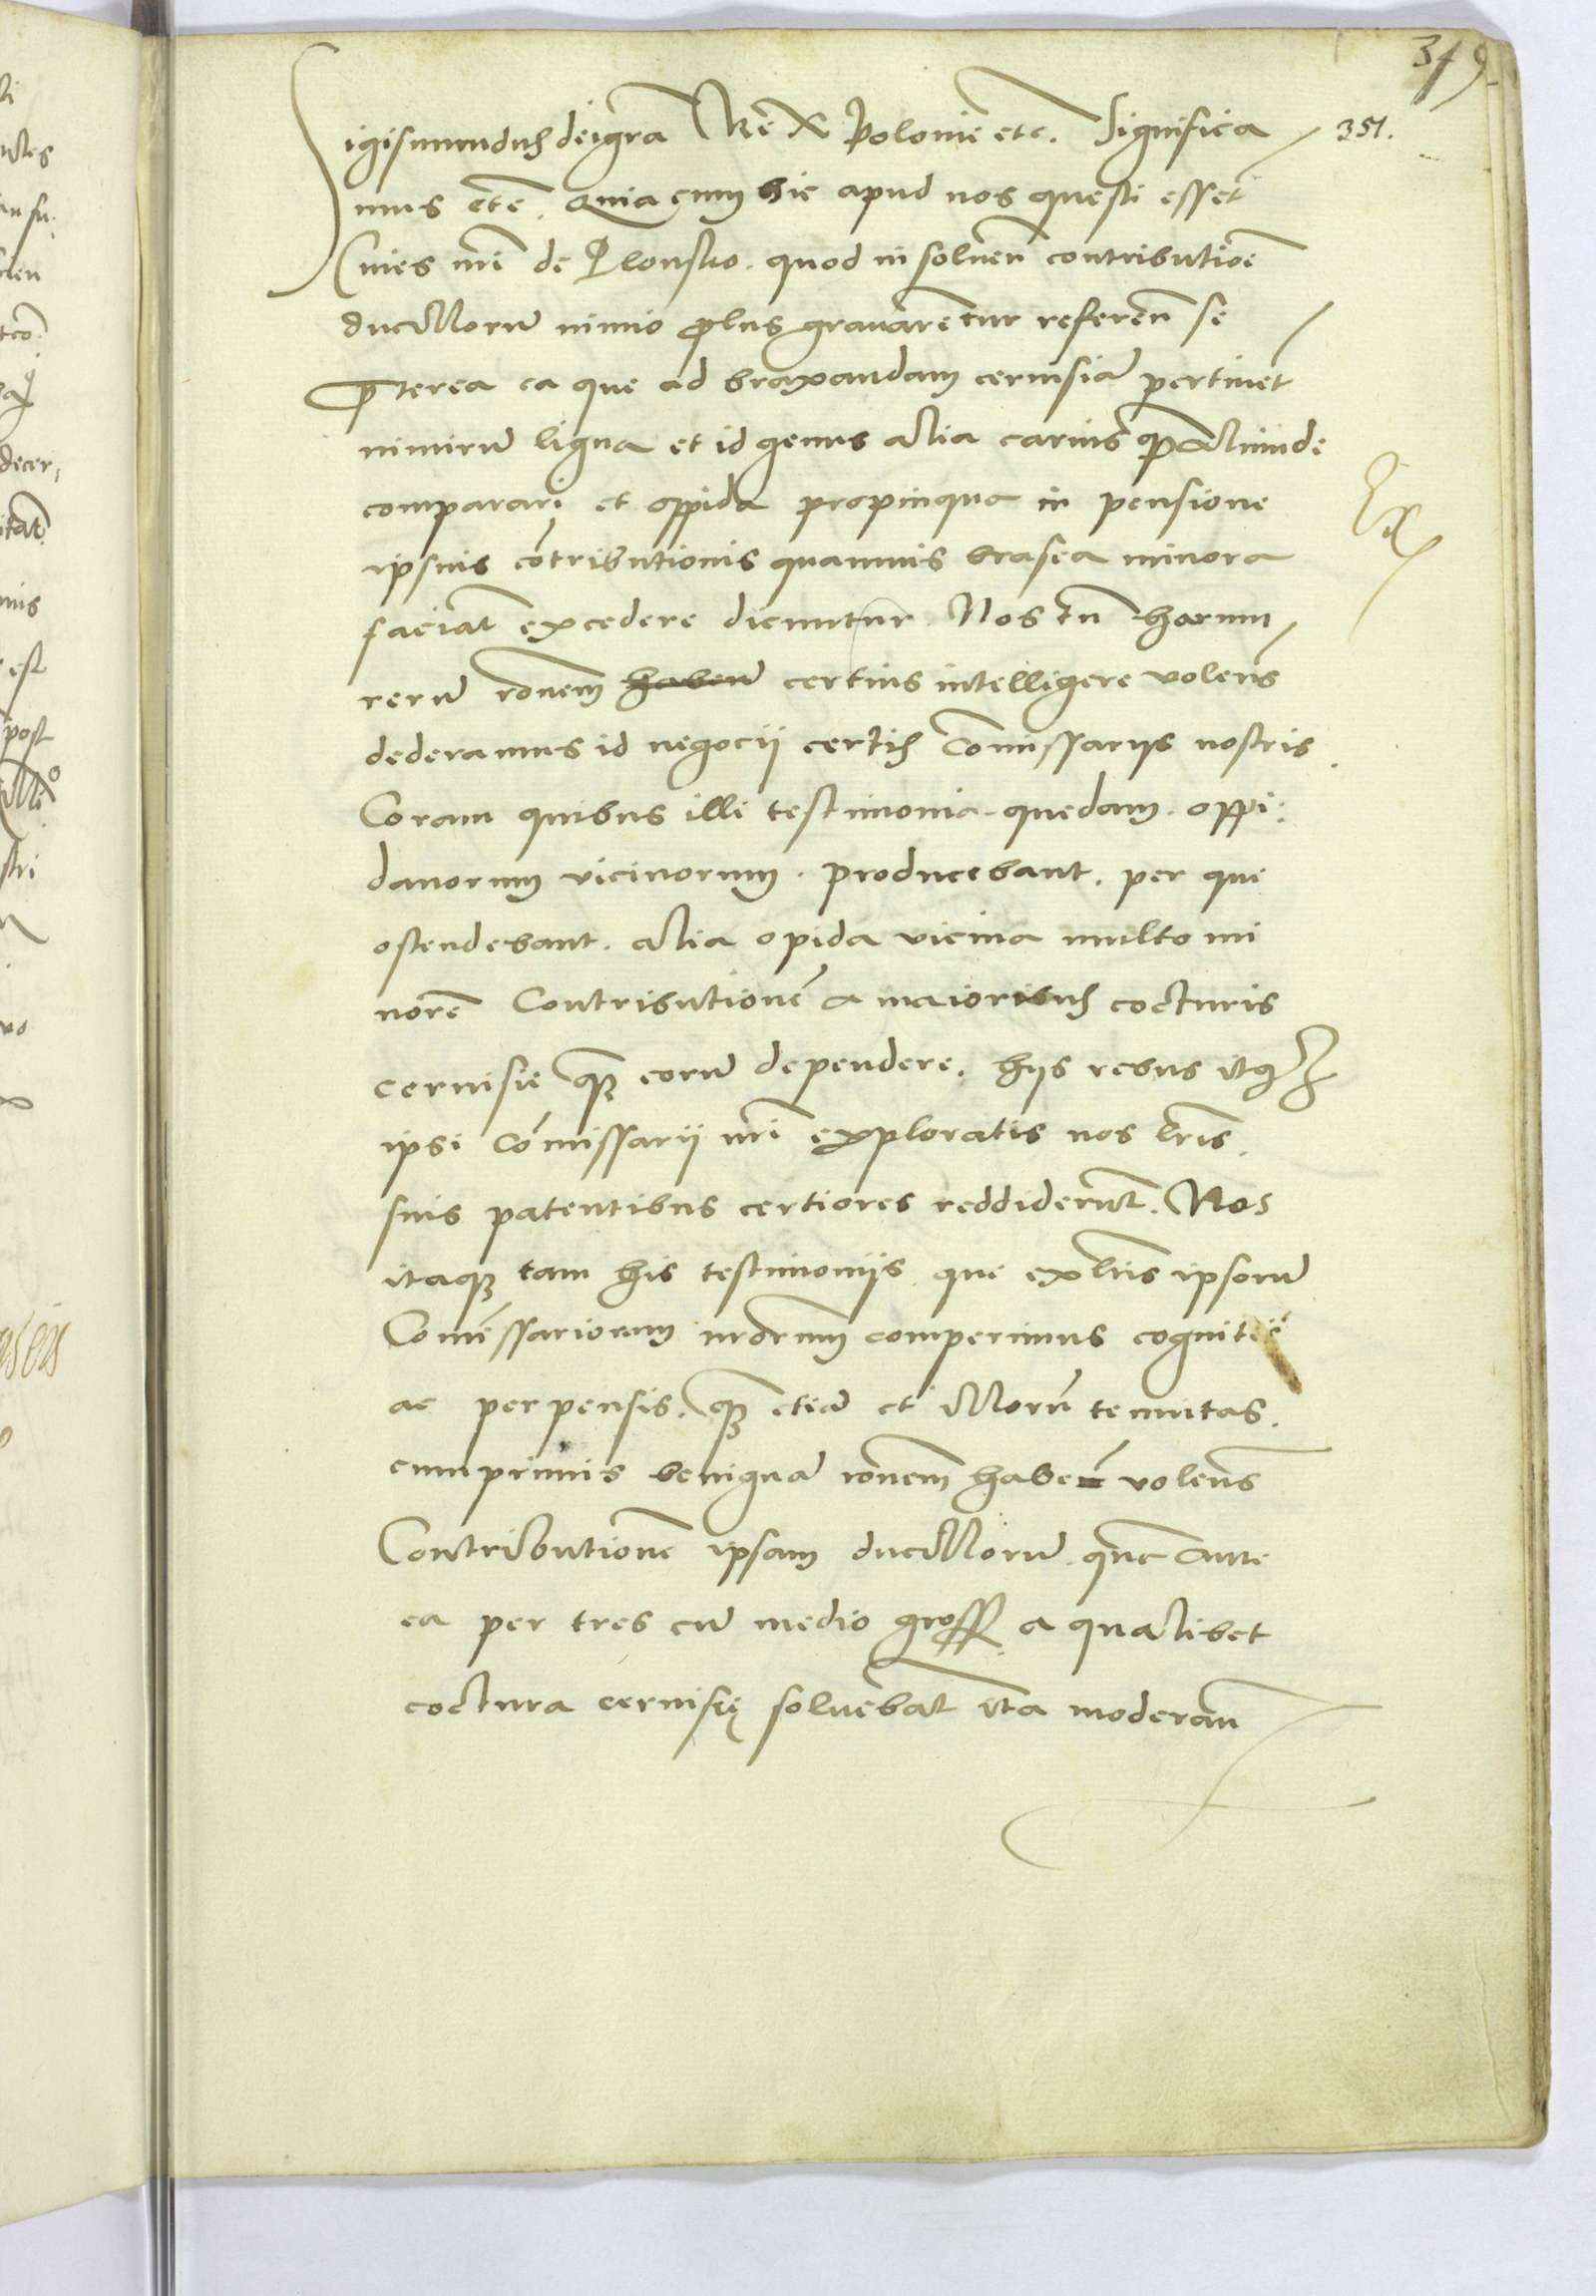 349
Sigismundus dei gra Rex Polonie etc. Significa 351.
mus etc. Quia cum hic apud nos questi essent
Cives nri de Plonsko. quod in solven contributioe
ducillorum nimio plus gravarentur referen se
pterea ea que ad braxandam cervisiam pertinet
nimirum ligna et id genus alia carius qam aliunde
comparari et oppida propinqua in pensione
ipsius cotributionis quamvis brasea minora
faciat excedere dicuntur. Nos tn harum
rerum ronem haben certius intelligere volens
dederamus id negocii certis Comissariis nostris.
Coram quibus illi testimonia quedam. oppi:
danorum vicinorum. producebant. per que
ostendebant. alia opida vicina multo mi
norem Contributione a maioribus cocturis
cervisie qam eorum dependere. hys rebus itaq
ipsi Comissarii nri exploratis nos lris.
suis patentibus certiores reddiderunt. Nos
itaq tam his testimoniis que ex lris ipsorum
Comissariorum nrorum comperimus cognitis
ac perpensis. qam etiam et illorum tenuitas.
cumprimis benignam ronem haben volens
Contributione ipsam ducillorum que ante
ea per tres cum medio gross. a qualibet
coctura cervisię solvebat ita moderan